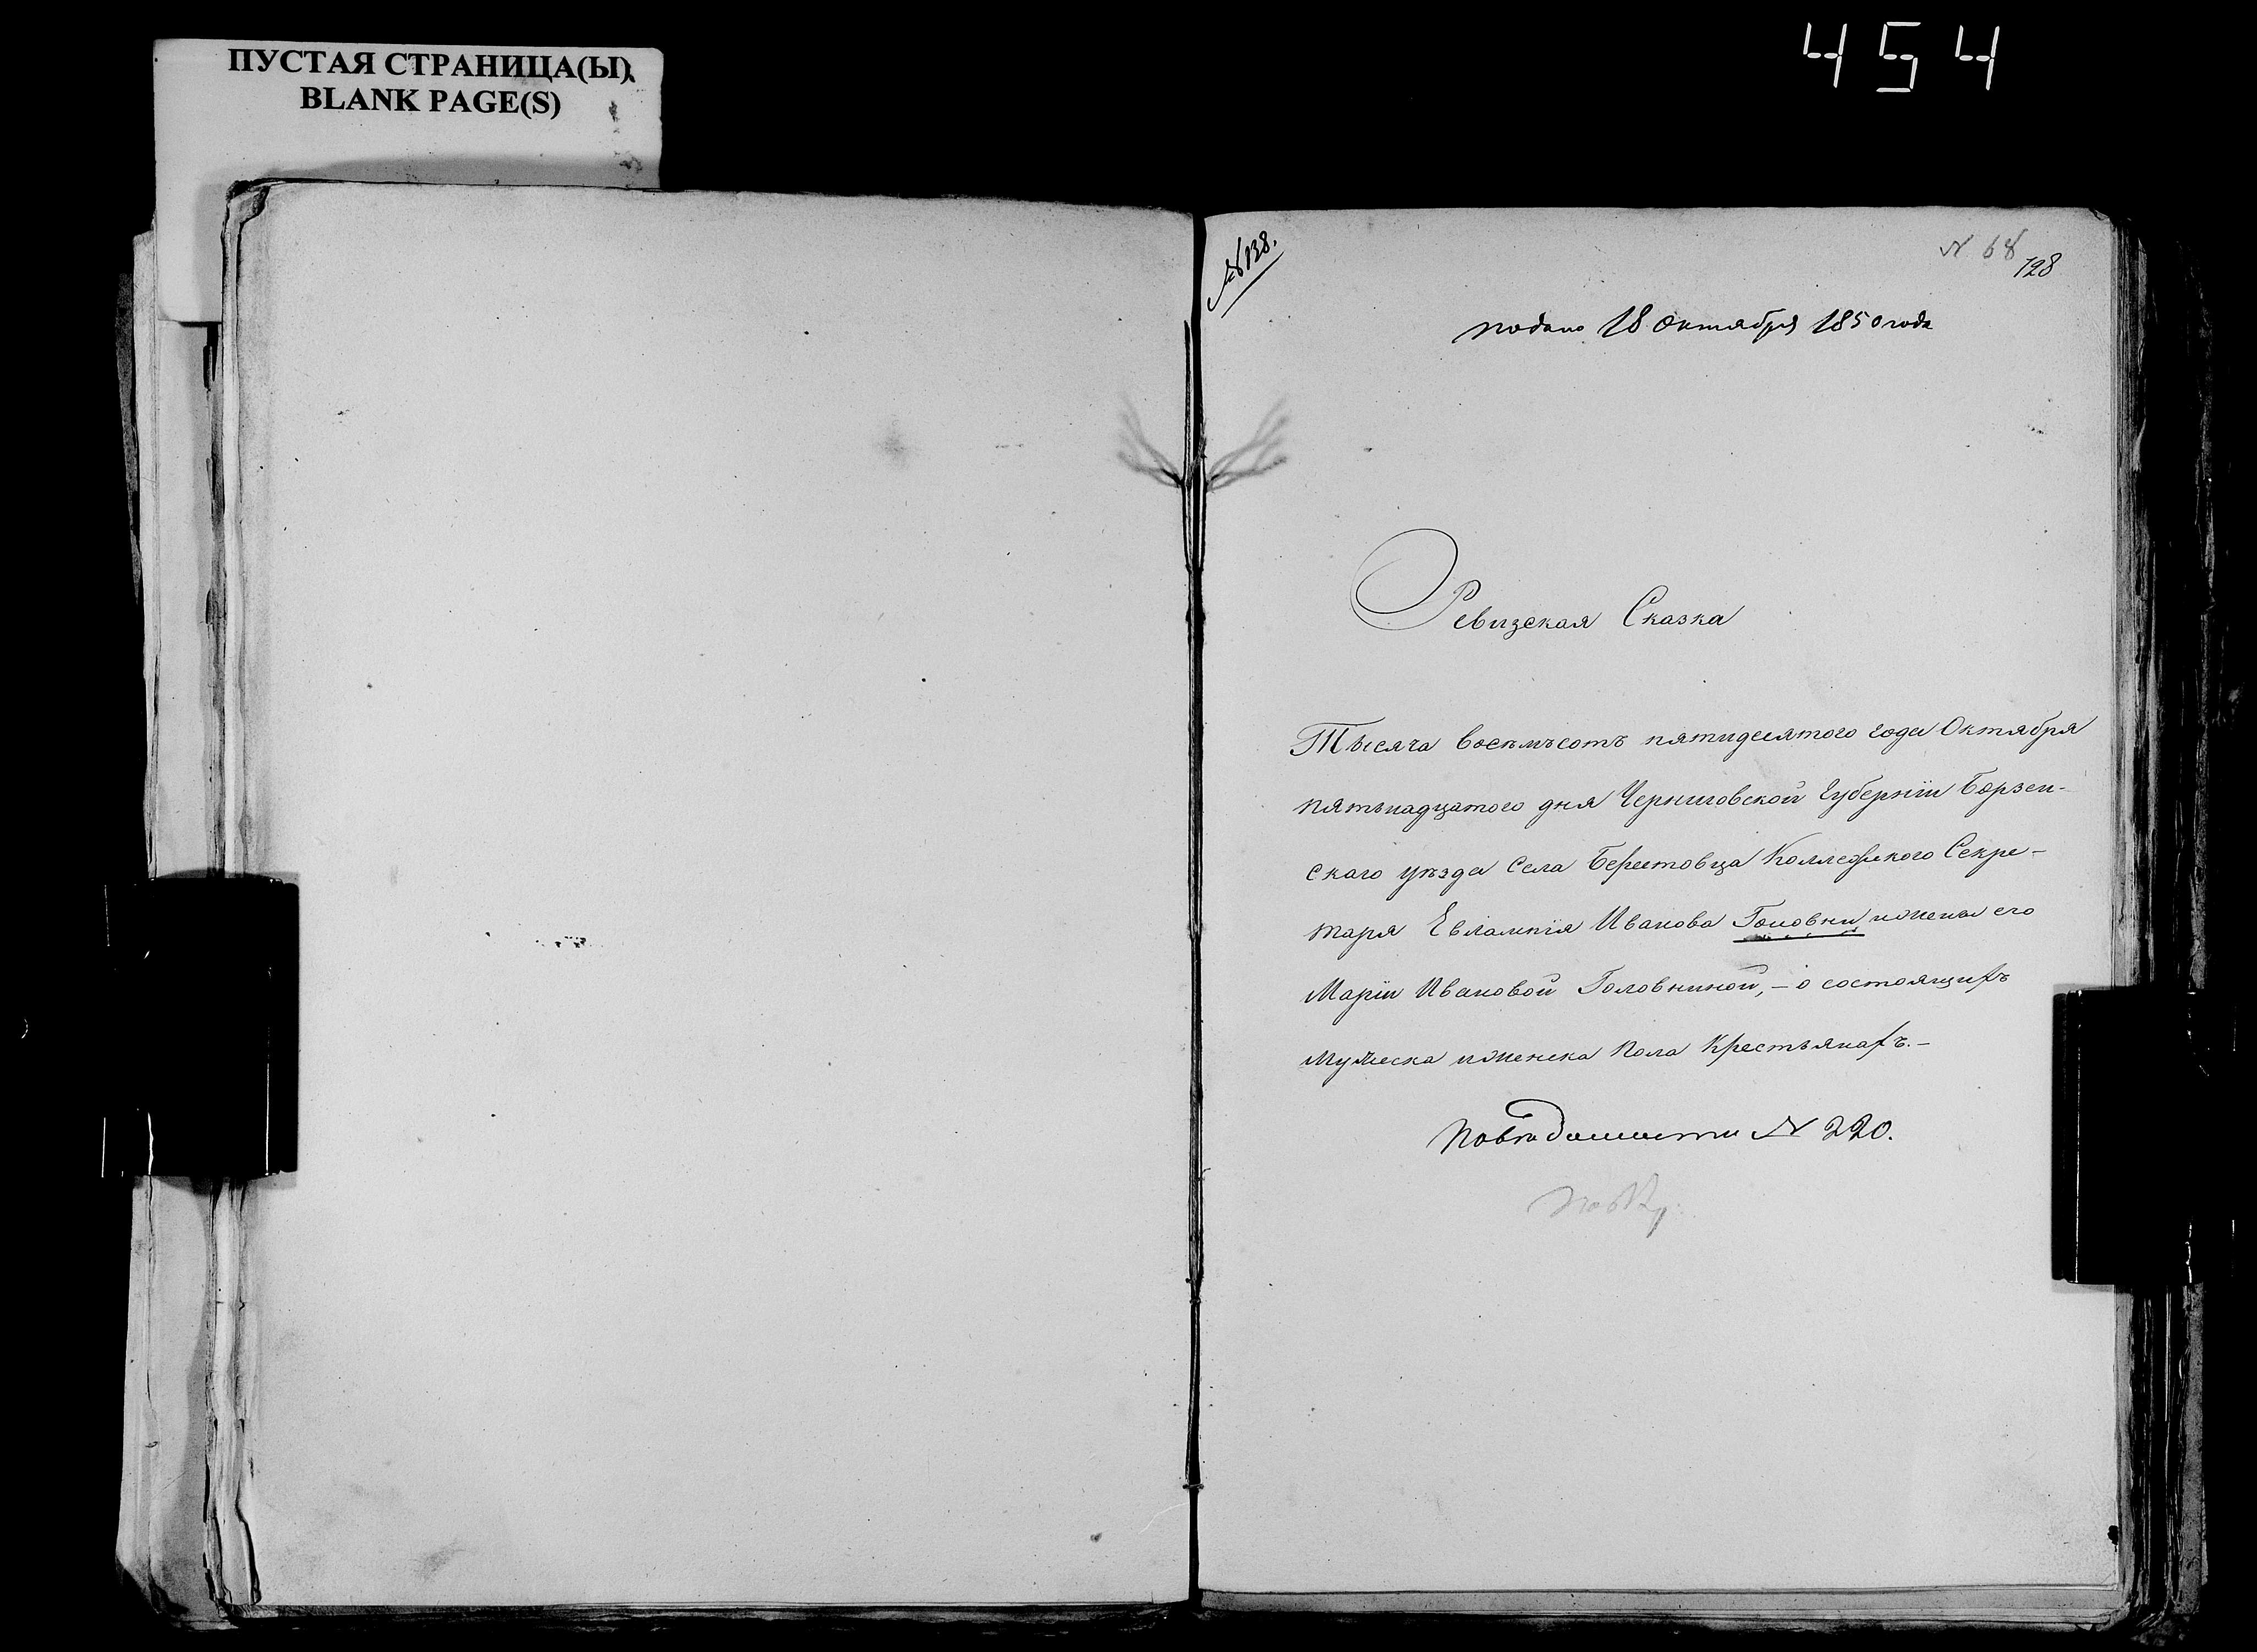 454
ПУСТАЯ СТРАНИЦА(Ы)
BLANK PAGE(S)
№ 138.
N 68
128
подано 18 Октября 1850 года
Ревизская Сказка
Тысяча восемьсотъ пятидесятого года Октября
пятьнадцатого дня Черниговской Губерніи Борзен-
скаго уѣзда Села Берестовца Коллежского Секре-
таря Евлампія Иванова Головни и жены его
Маріи Ивановой Головниной, – о состоящихъ
мужеска и женска пола Крестьянахъ. –
По вѣдомости N 220.